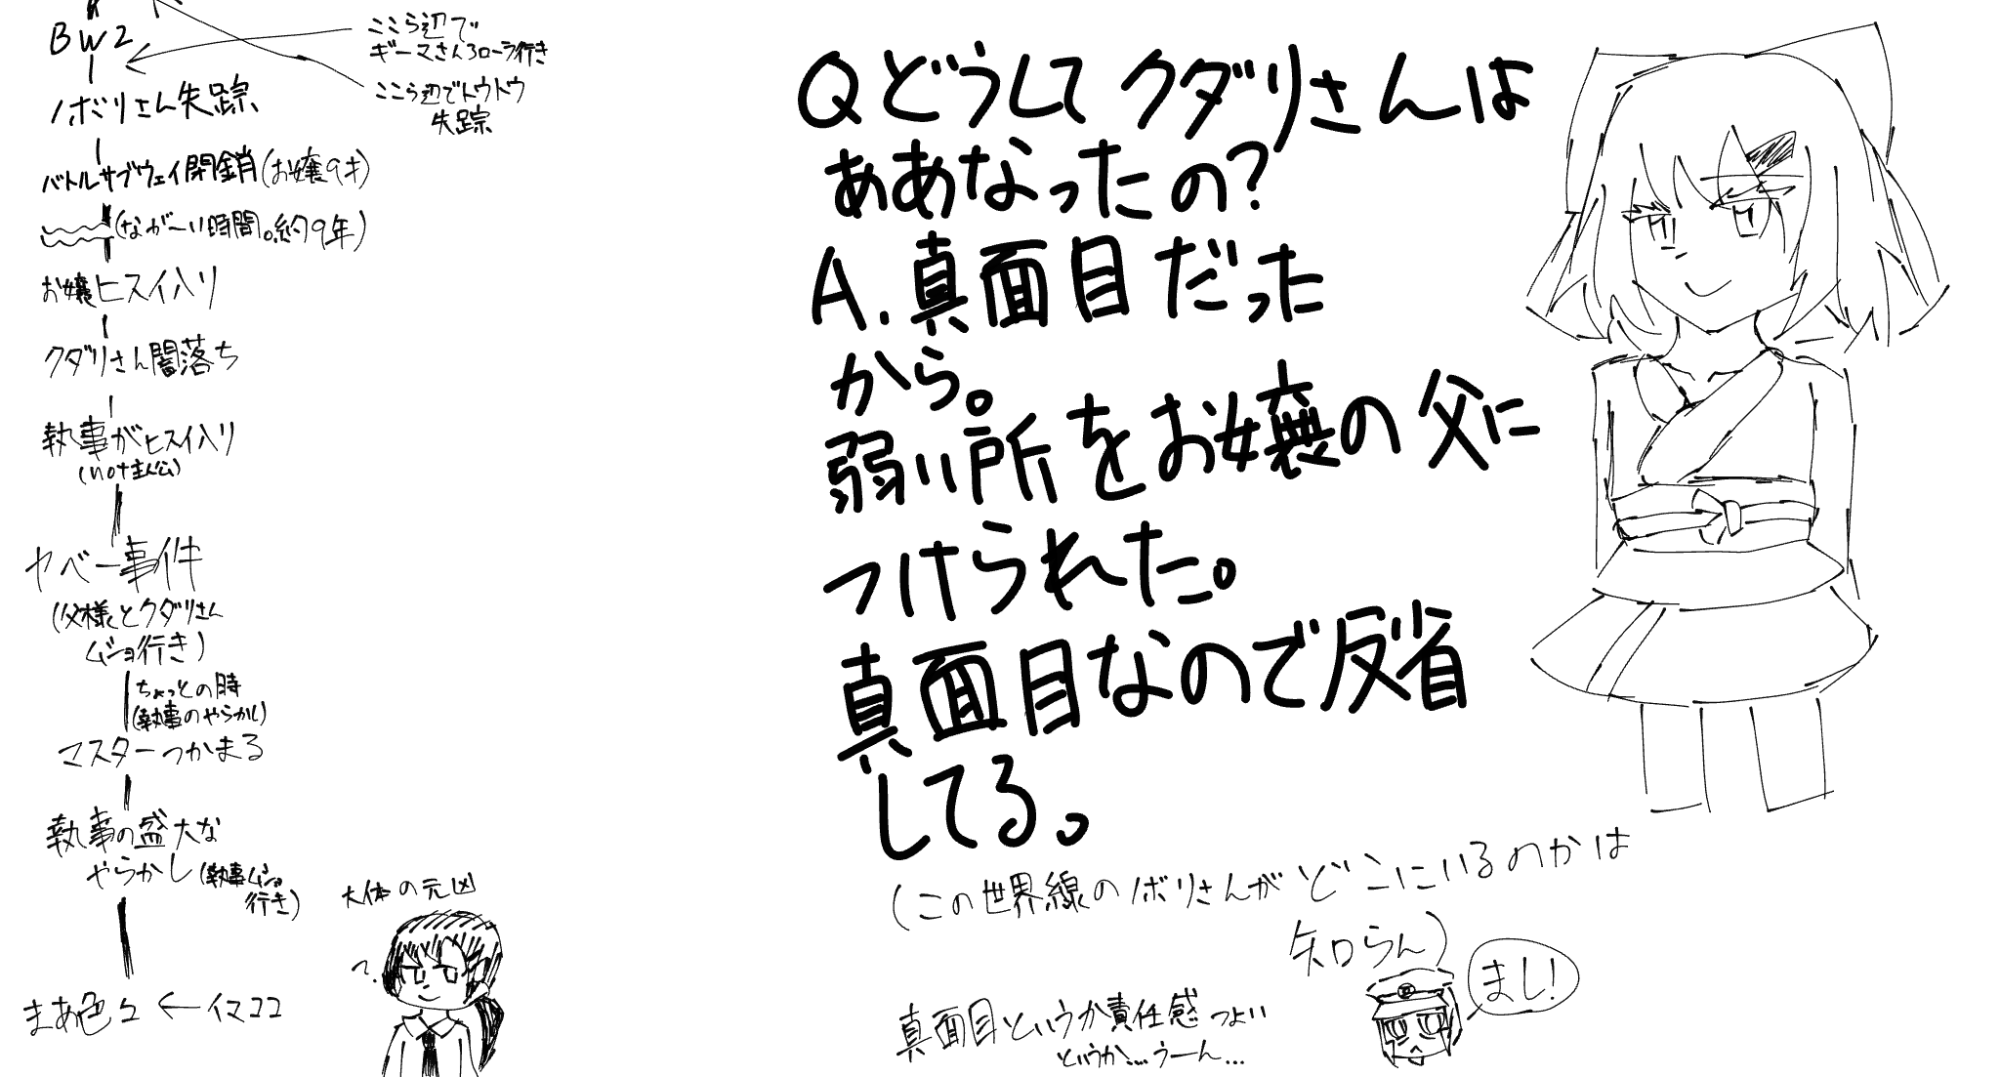 BW2
ここら辺で
ギーマさんアローラ行き
ここら辺でトウトウ
失踪
ノボリさん失踪
バトルサブウェイ閉鎖(お嬢9才)
(なが〜い時間。約9年)
お嬢ヒスイ入り
クダリさん闇落ち
執事がヒスイ入り
(not主人公)
ヤベー事件
(父様とクダリさん
ムショ行き)
ちょっとの時
(執事のやらかし)
マスターつかまる
執事の盛大な
やらかし(執事ムショ
行き)
まあ色々 ←イマココ
大体の元凶
?
Qどうしてクダリさんは
ああなったの?
A.真面目だった
から。
弱い所をお嬢の父に
つけられた。
真面目なので反省
してる。
(この世界線のノボリさんがどこにいるのかは
知らん)
まし!
真面目というか責任感つよい
というか...うーん...